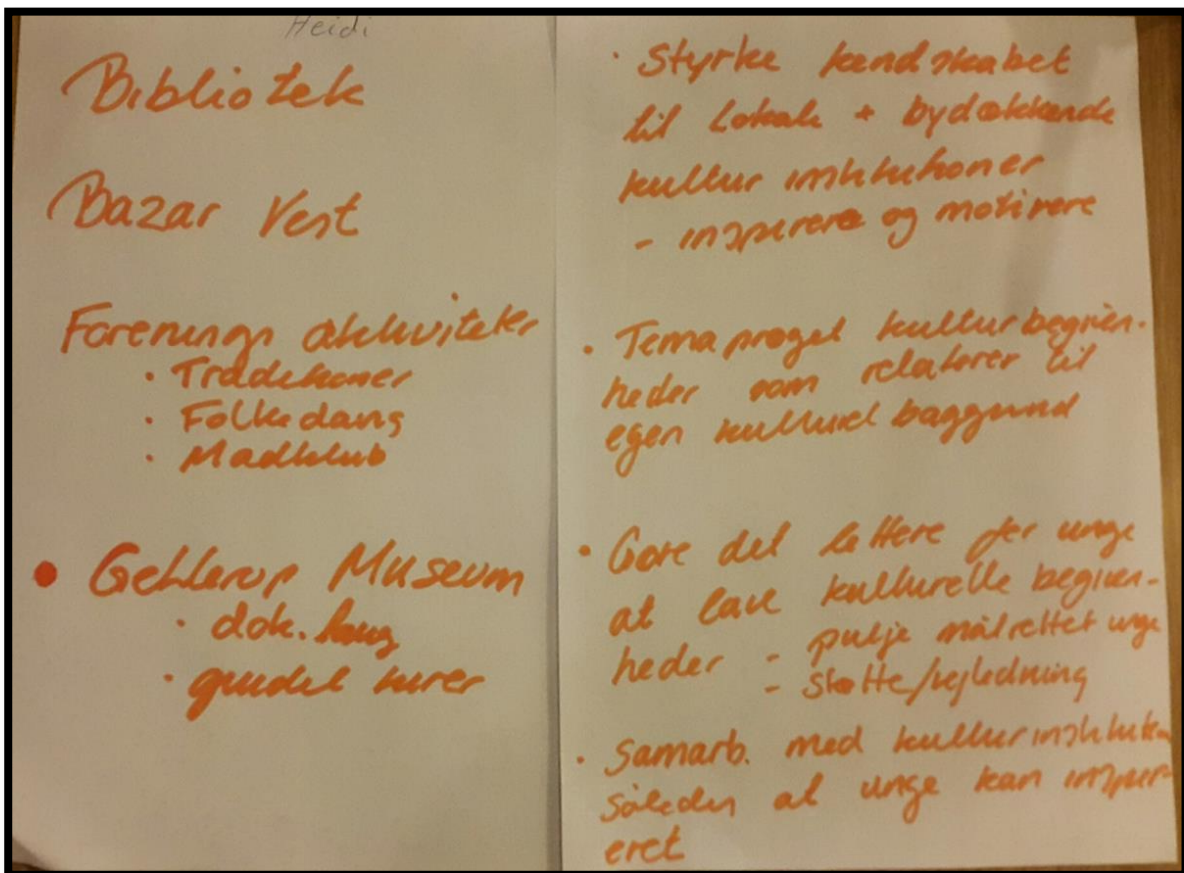 Heidi
Bibliotek
Bazar Vest
Forenings aktiviteter
· Trådekoner
· Folkedans
· Madklub
• Gellerup Museum
· dok.
· guidet turer
· Styrke kendskabet
til Lokale + bydækkende
kultur institutioner
- inspirere og motivere
· Temapræget kulturbegiven-
heder som relaterer til
egen kulturel baggrund
· Gøre det lettere for unge
at lave kulturelle begiven-
heder - pulje målrettet unge
- støtte/vejledning
· Samarb. med kulturinstitution
således at unge kan inspir-
eret